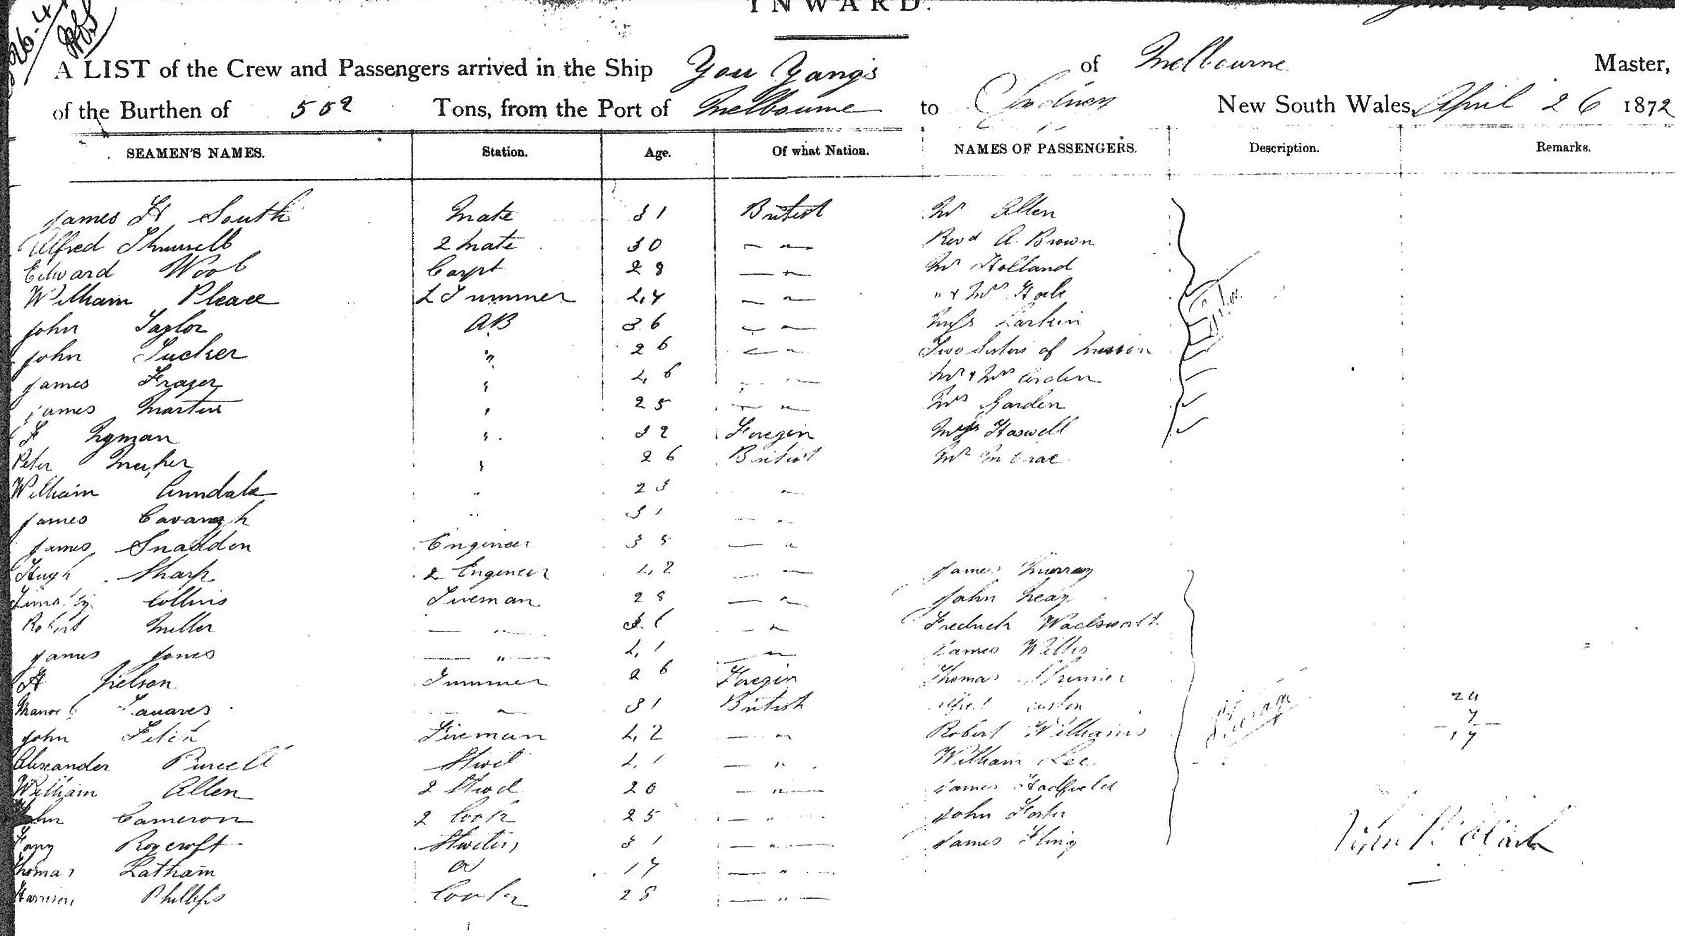 INWARD.
A LIST of the Crew and Passengers arrived in the Ship You Yangs of Melbourne Master,
of the Burthen of 502 Tons, from the Port of Melbourne to Sydney New South Wales, April 26 1872
SEAMEN'S NAMES. Station. Age. Of what Nation. NAMES OF PASSENGERS. Description. Remarks.
James H South Mate 31 British Mr Allen
Alfred Thurrell 2 Mate 30 — " — Revd A. Brown
Edward Wool Carpt 28 — " — Mr Holland
William Pleace L Trimmer 24 — " — " & Mrs
John Taylor AB 36 — " — Miss Larkin
John Tucker " 26 — " — Two Sisters of
James Frazer " 46 — " — Mr & Mrs
James Martin " 25 — " — Mrs Garden
F Nyman " 32 Foregin Miss Haswell
Peter 26 British Mr McCrae
William Anndale " 23 "
James Cavanagh " 31 — " —
James Snadden Engineer 35 — "
Hugh Sharp 2 Engineer 42 — " — James Murray
Collins Fireman 28 — " — John
Robert Miller — " — 36 — " — Fredrick Wadsworth
James Jones — " — 41 — " — James Willis
H Nelson Trimmer 26 Foregin Thomas
Tavares — " — 31 British Alfred
John Fireman 42 — " — Robert Williams
Alexander Purcell Stwd 41 — " — William Lee
William Allen 2 Stwd 20 — " — James Hadfield
John Cameron 2 Cook 25 — " — John Foster
Roycroft 31 — " — James Kling
Thomas Latham OS 17 — " —
Harrison Phillips Cook 28 — " —
24
7
17
John P. Clark